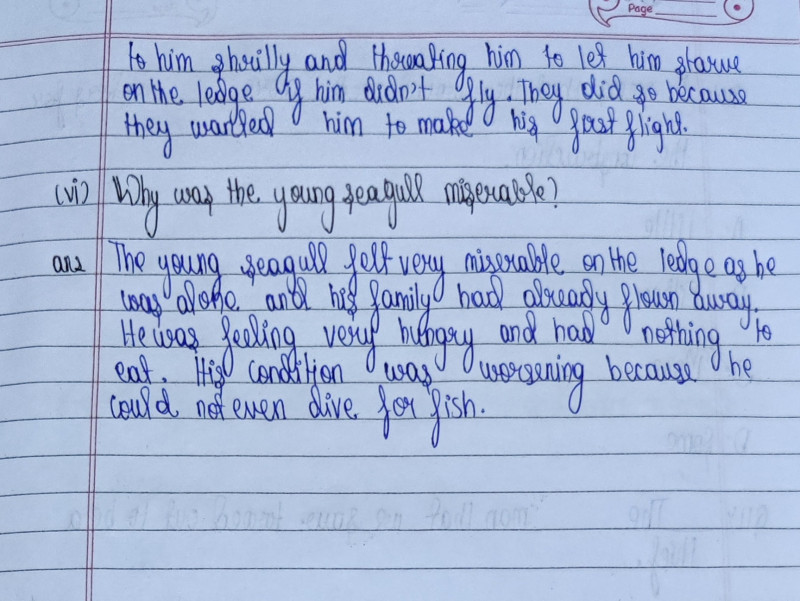 Page
to him shrilly and threating him to let him starve
on the ledge if him didn't fly. They did so because
they wanted him to make his first flight.
(vi) Why was the young seagull miserable?
ans The young seagull felt very miserable on the ledge as he
was alone and his family had already flown away.
He was feeling very hungry and had nothing to
eat. His condition was worsening because he
could not even dive for fish.